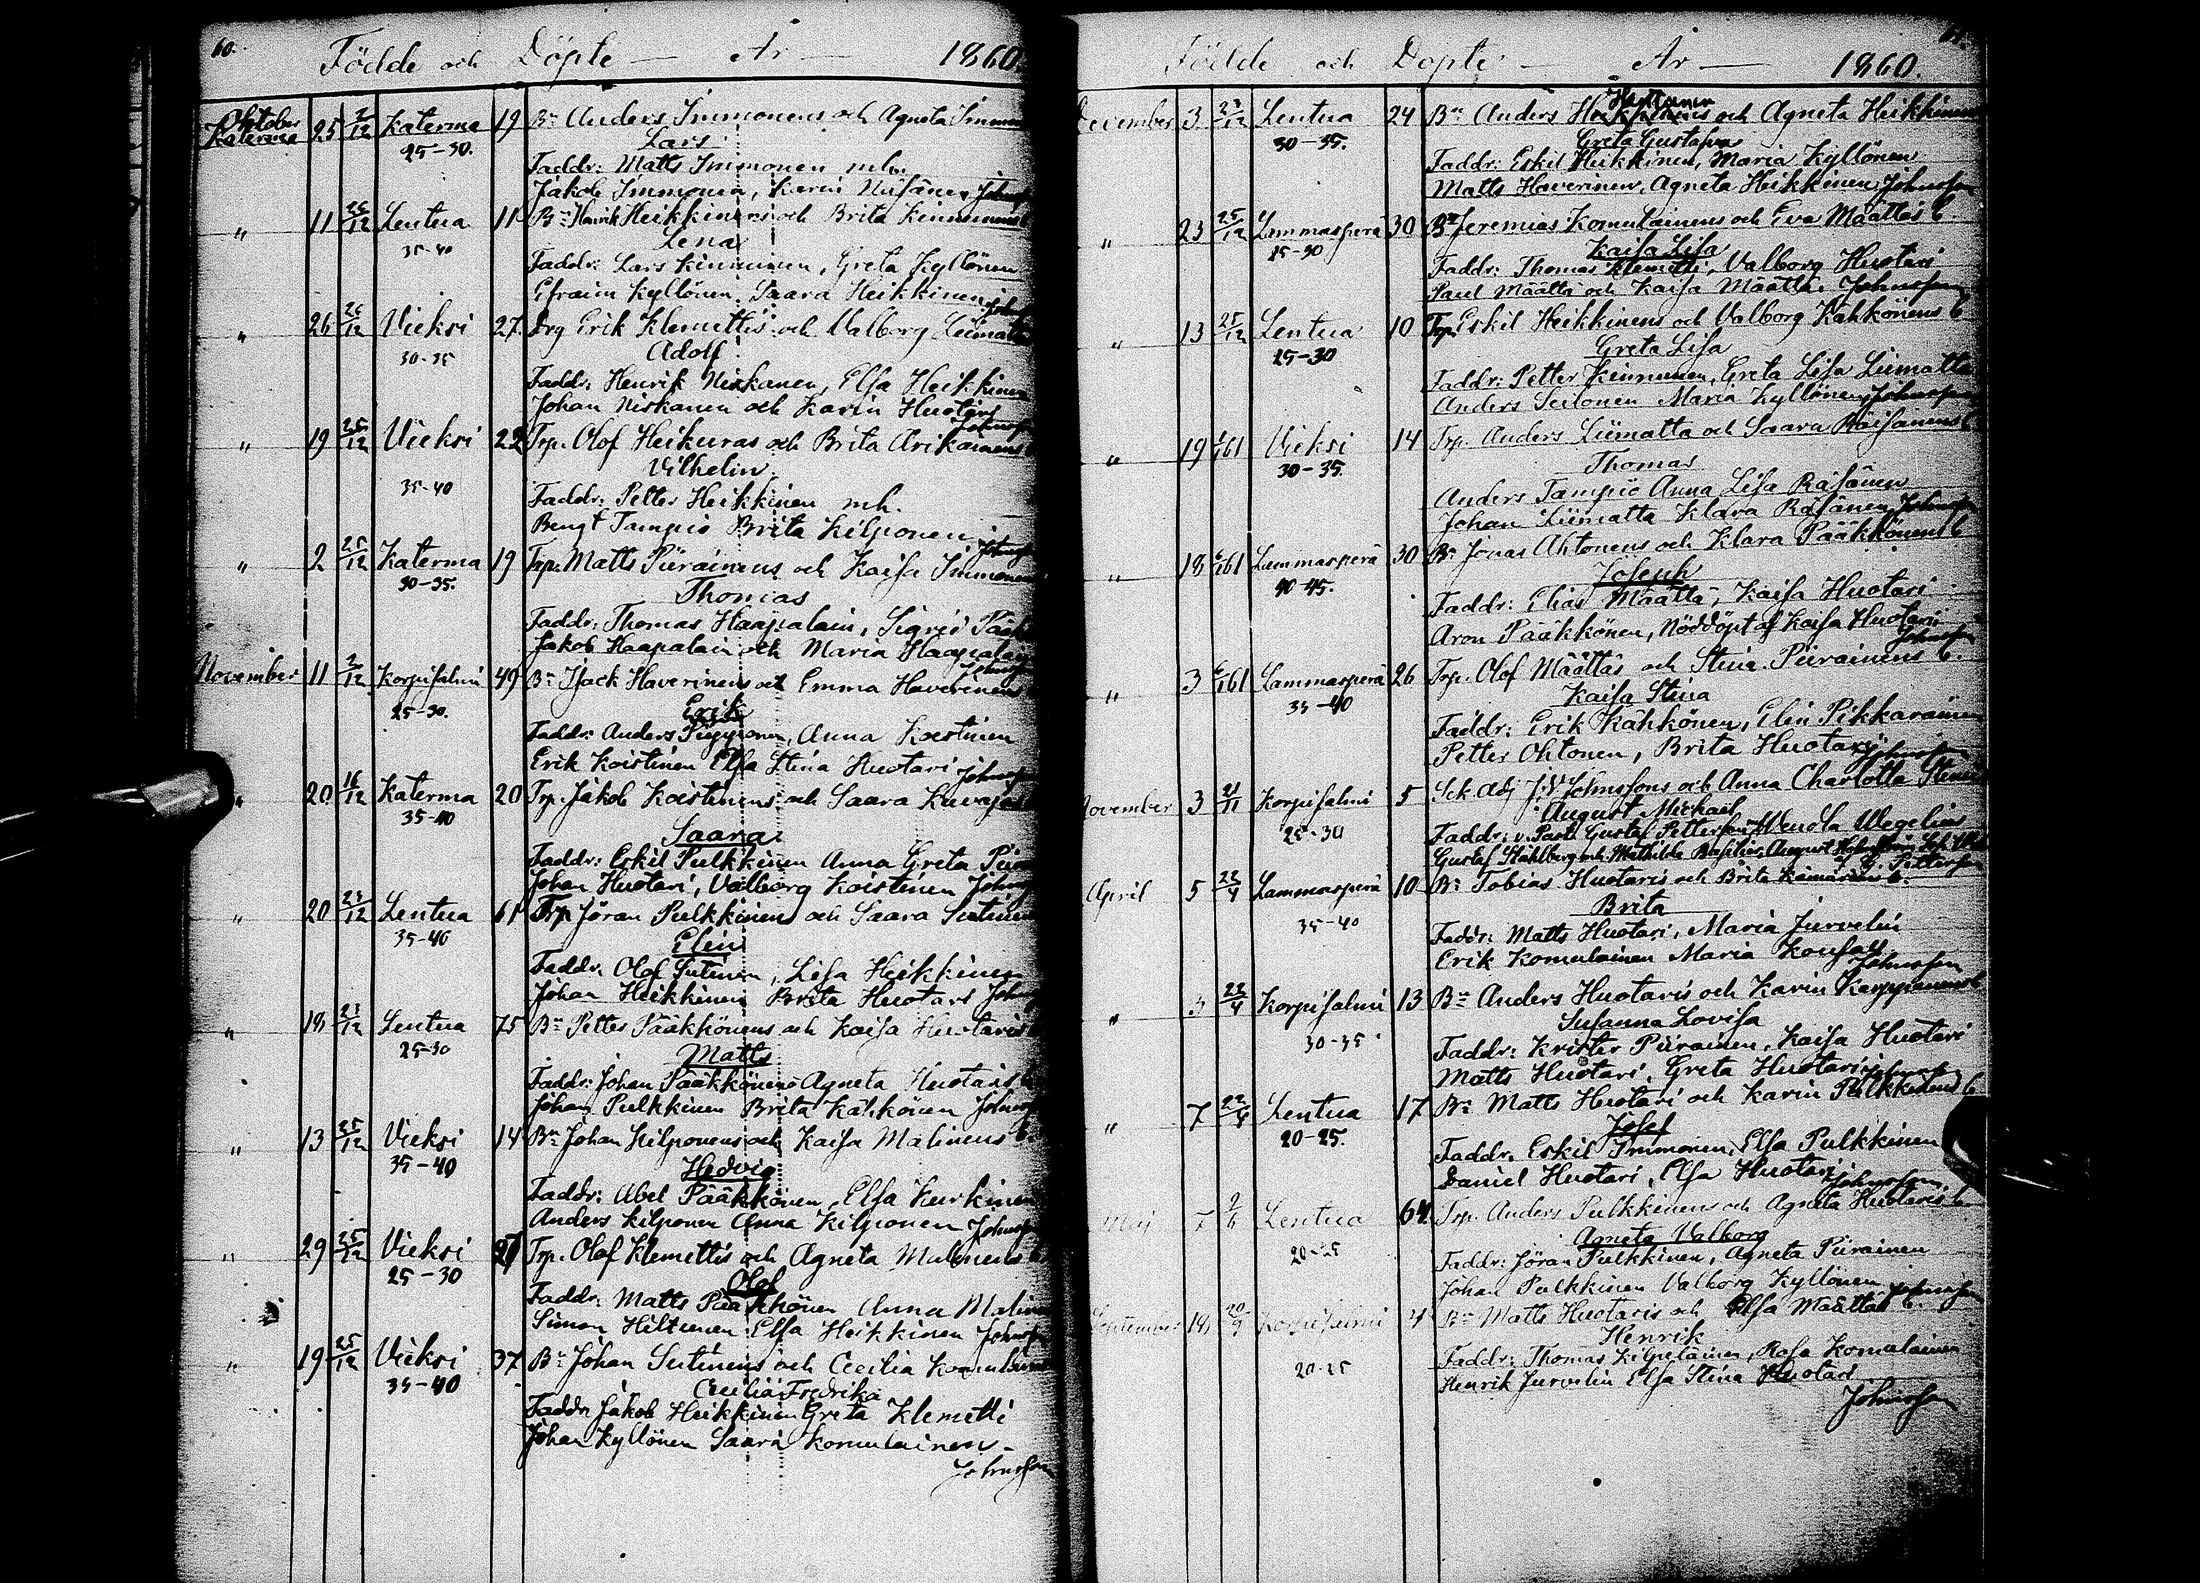 60.
Födde och Döpte — År — 1860.
Oktober
Katerma 25 2/12 Katerma 19 Bn Anders Immonens och Agneta Immon
25-30. Lars
Faddr: Matts Immonen mh.
Jakob Immonen, Karin Johnsson
" 11 25/12 Lentua 11 Bn Henrik Heikkinens och Brita Kinnunens
35-40 Lena
Faddr: Lars Kinnunen, Greta Kyllönen
Efraim Kyllönen Saara Heikkinen
" 26 26/12 Vieksi 27 Drg Erik Klemettis och Valborg Liimatta
30-35 Adolf
Faddr: Henrik Niskanen, Elsa Heikkinen
Johan Niskanen och Karin Huotari
Johnsson
" 19 25/12 Vieksi 22 Trp. Olof Heikuras och Brita Arikainens
Vilhelm
35-40
Faddr: Petter Heikkinen mh.
Bengt Tampio Brita Kilponen
" 2 25/12 Katerma 19 Trp. Matts Piirainens och Kaisa Immonen
30-35. Thomas
Faddr: Thomas Haapalain, Sigrid
Jakob Haapalain och Maria Haapalain
November 11 2/12 Korpisalmi 49 Bn Isack Haverinens och Emma Haverinens
25-30. Erik
Faddr: Anders Piipponen, Anna Koistinen
Erik Koistinen Elsa Stina Huotari Johnsson
" 20 16/12 Katerma 20 Trp. Jakob Koistinens och Saara
35-40
Saara
Faddr: Eskil Pulkkinen Anna Greta
Johan Huotari, Valborg Koistinen Johnsson
" 20 23/12 Lentua 61 Trp. Jöran Pulkkinens och Saara Sutinen
35-40 Elin
Faddr. Olof Sutinen, Lisa Heikkinen
Johan Heikkinen Brita Huotari Johnsson
" 18 23/12 Lentua 75 Bn Petter Pääkkönens och Kaisa Huotaris
25-30 Matts
Faddr: Johan Pääkkönens Agneta Huotaris
Johan Pulkkinen Brita Kähkönen Johnsson
" 13 25/12 Vieksi 14 Bn Johan Kilponens och Kaisa Malinens
35-40 Hedvig
Faddr: Abel Pääkkönen, Elsa Kurkinen
Anders Kilponen Anna Kilponen Johnsson
" 29 25/12 Vieksi 27 Trp. Olof Klemettis och Agneta Malinens
25-30 Olof
Faddr: Matts Pääkkönen Anna Malinen
Simon Hiltunen Elsa Heikkinen Johnsson
" 19 25/12 Vieksi 37 Bn Johan Sutinens och Cecilia Komulainens
35-40 Cecilia Fredrika
Faddr Jakob Heikkinen Greta Klemetti
Johan Kyllönen Saara Komulainen
Johnsson
61.
Födde och Döpte — År — 1860.
December 3 23/12 Lentua 24 Bn Anders och Agneta Heikkinens
30-35. Greta Gustafva
Faddr: Eskil Heikkinen, Maria Kyllönen
Matts Haverinen, Agneta Heikkinen Johnsson
" 23 25/12 Lammasperä 30 Bn Jeremias Komulainens och Eva Määttäs b.
25-30 Kaisa Lisa
Faddr: Thomas Klemetti, Valborg Huotari
Paul Määttä och Kaisa Määttä. Johnsson
" 13 25/12 Lentua 10 Trp. Eskil Heikkinens och Valborg Kähkönens b
25-30 Greta Lisa
Faddr: Petter Kinnunen, Greta Lisa Liimatta
Anders Maria Kyllönen Johnsson
" 19 1/161 Vieksi 14 Trp. Anders Liimatta och Saara Räisänens b
30-35. Thomas
Anders Tampio Anna Lisa Räisänen
Johan Liimatta Klara Räisänen Johnsson
" 18 6/161 Lammasperä 30 Bn Jonas Ohtonens och Klara Pääkkönens b
40-45. Joseph
Faddr: Elias Määttä, Kaisa Huotari
Aron Pääkkönen, Nöddöpt af Kaisa Huotari
Johnsson
" 3 6/161 Lammasperä 26 Trp. Olof Määttäs och Stina Piirainens b.
35-40 Kaisa Stina
Faddr: Erik Kähkönen, Elin Pikkarainen
Petter Ohtonen, Brita Huotari Johnsson
November 3 21/11 Korpisalmi 5 Sck Adj J. V. Johnssons och Anna Charlotta
25-30 August Michael
Faddr: v. Past. Gustaf Pettersson, Wendla Wegelius
Gustaf Ståhlberg och Mathilda Basilier, August
G. Pettersson
April 5 22/4 Lammasperä 10 Bn Tobias Huotaris och Brita b.
35-40 Brita
Faddr: Matts Huotari, Maria Jurvelin
Erik Komulainen Maria
Johnsson
" 5 22/4 Korpisalmi 13 Bn Anders Huotaris och Karin Karppanens b
Susanna Lovisa
30-35 Faddr: Krister Piirainen, Kaisa Huotari
Matts Huotari, Greta Huotari Johnsson
" 7 22/4 Lentua 17 Bn Matts Huotari och Karin Pulkkinens b
20-25. Josef
Faddr. Eskil Immonen, Elsa Pulkkinen
Daniel Huotari, Elsa Huotari Johnsson
Maj 7 2/6 Lentua 64 Trp. Anders Pulkkinens och Agneta Huotaris b.
20-25 Agneta Valborg
Faddr: Jöran Pulkkinen, Agneta Piirainen
Johan Pulkkinen Valborg Kyllönen Johnsson
September 18 20/9 Korpisalmi 4 Bn Matts Huotaris och Elsa Määttäs b.
Henrik
20-25 Faddr: Thomas Kilpeläinen, Kaisa Komulainen
Henrik Jurvelin Elsa Stina Huotari
Johnsson